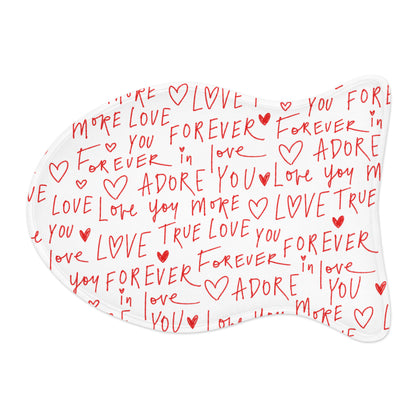 MORE ♡ LOVE YOU FOREVER
MORE LOVE YOU FOREVER ♥ Forever ADORE
Forever in love ♡ Love you
♡ ADORE YOU ♥ Love you MORE
LOVE Love you MORE ♡ LOVE TRUE
YOU ♥ LOVE TRUE LOVE YOU FOREVER
you FOREVER Forever in love
in love ♡ ADORE YOU
YOU ♥ Love you MORE ♡